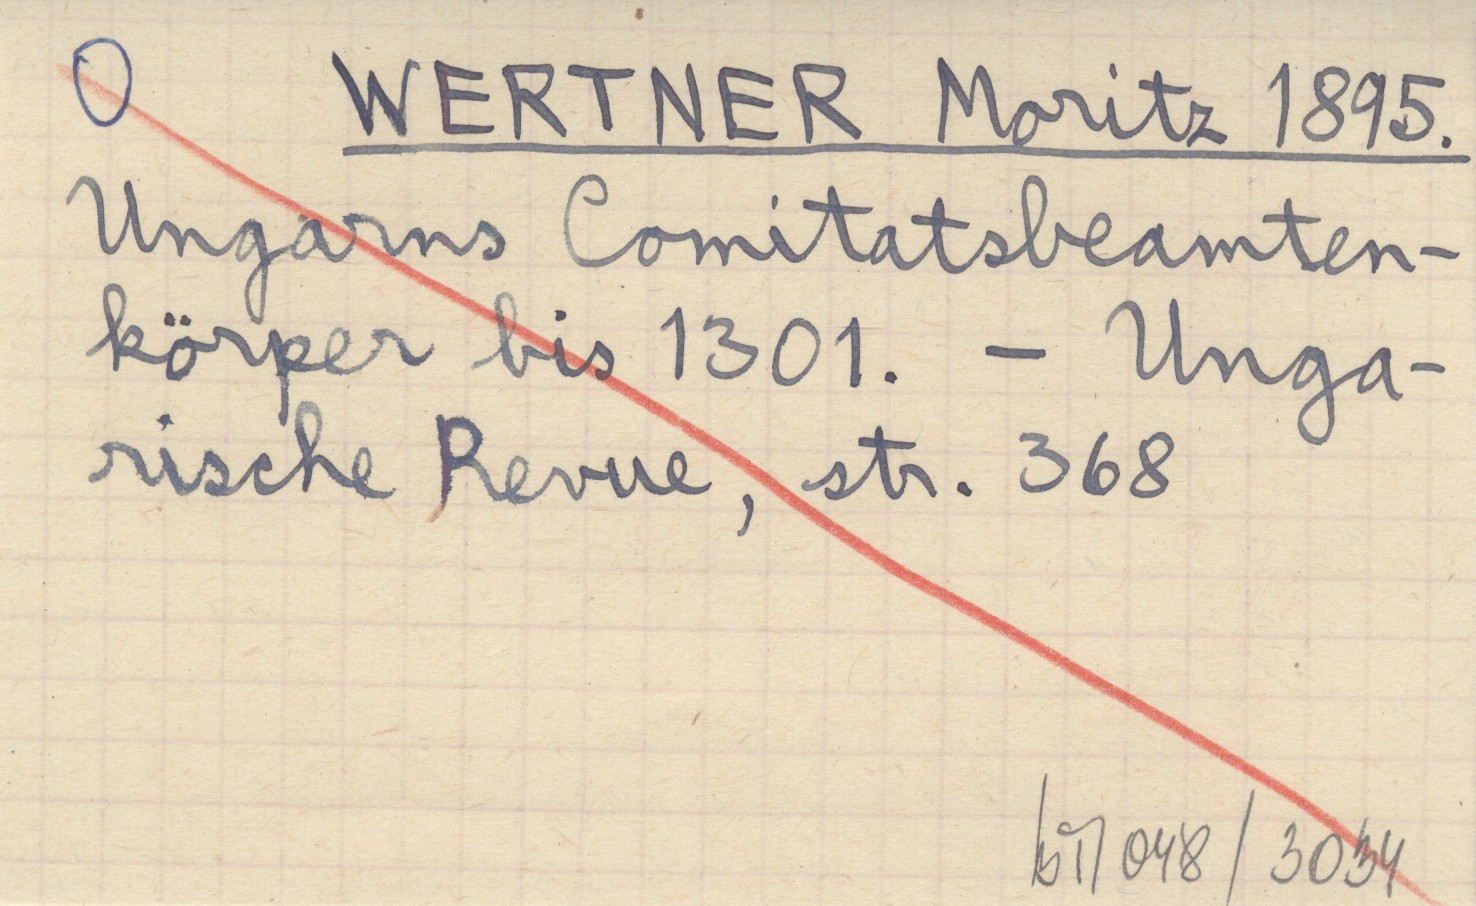 O WERTNER Moritz 1895.
Ungarns Comitatsbeamten-
körper bis 1301. – Unga-
rische Revue, str. 368
048 / 3034